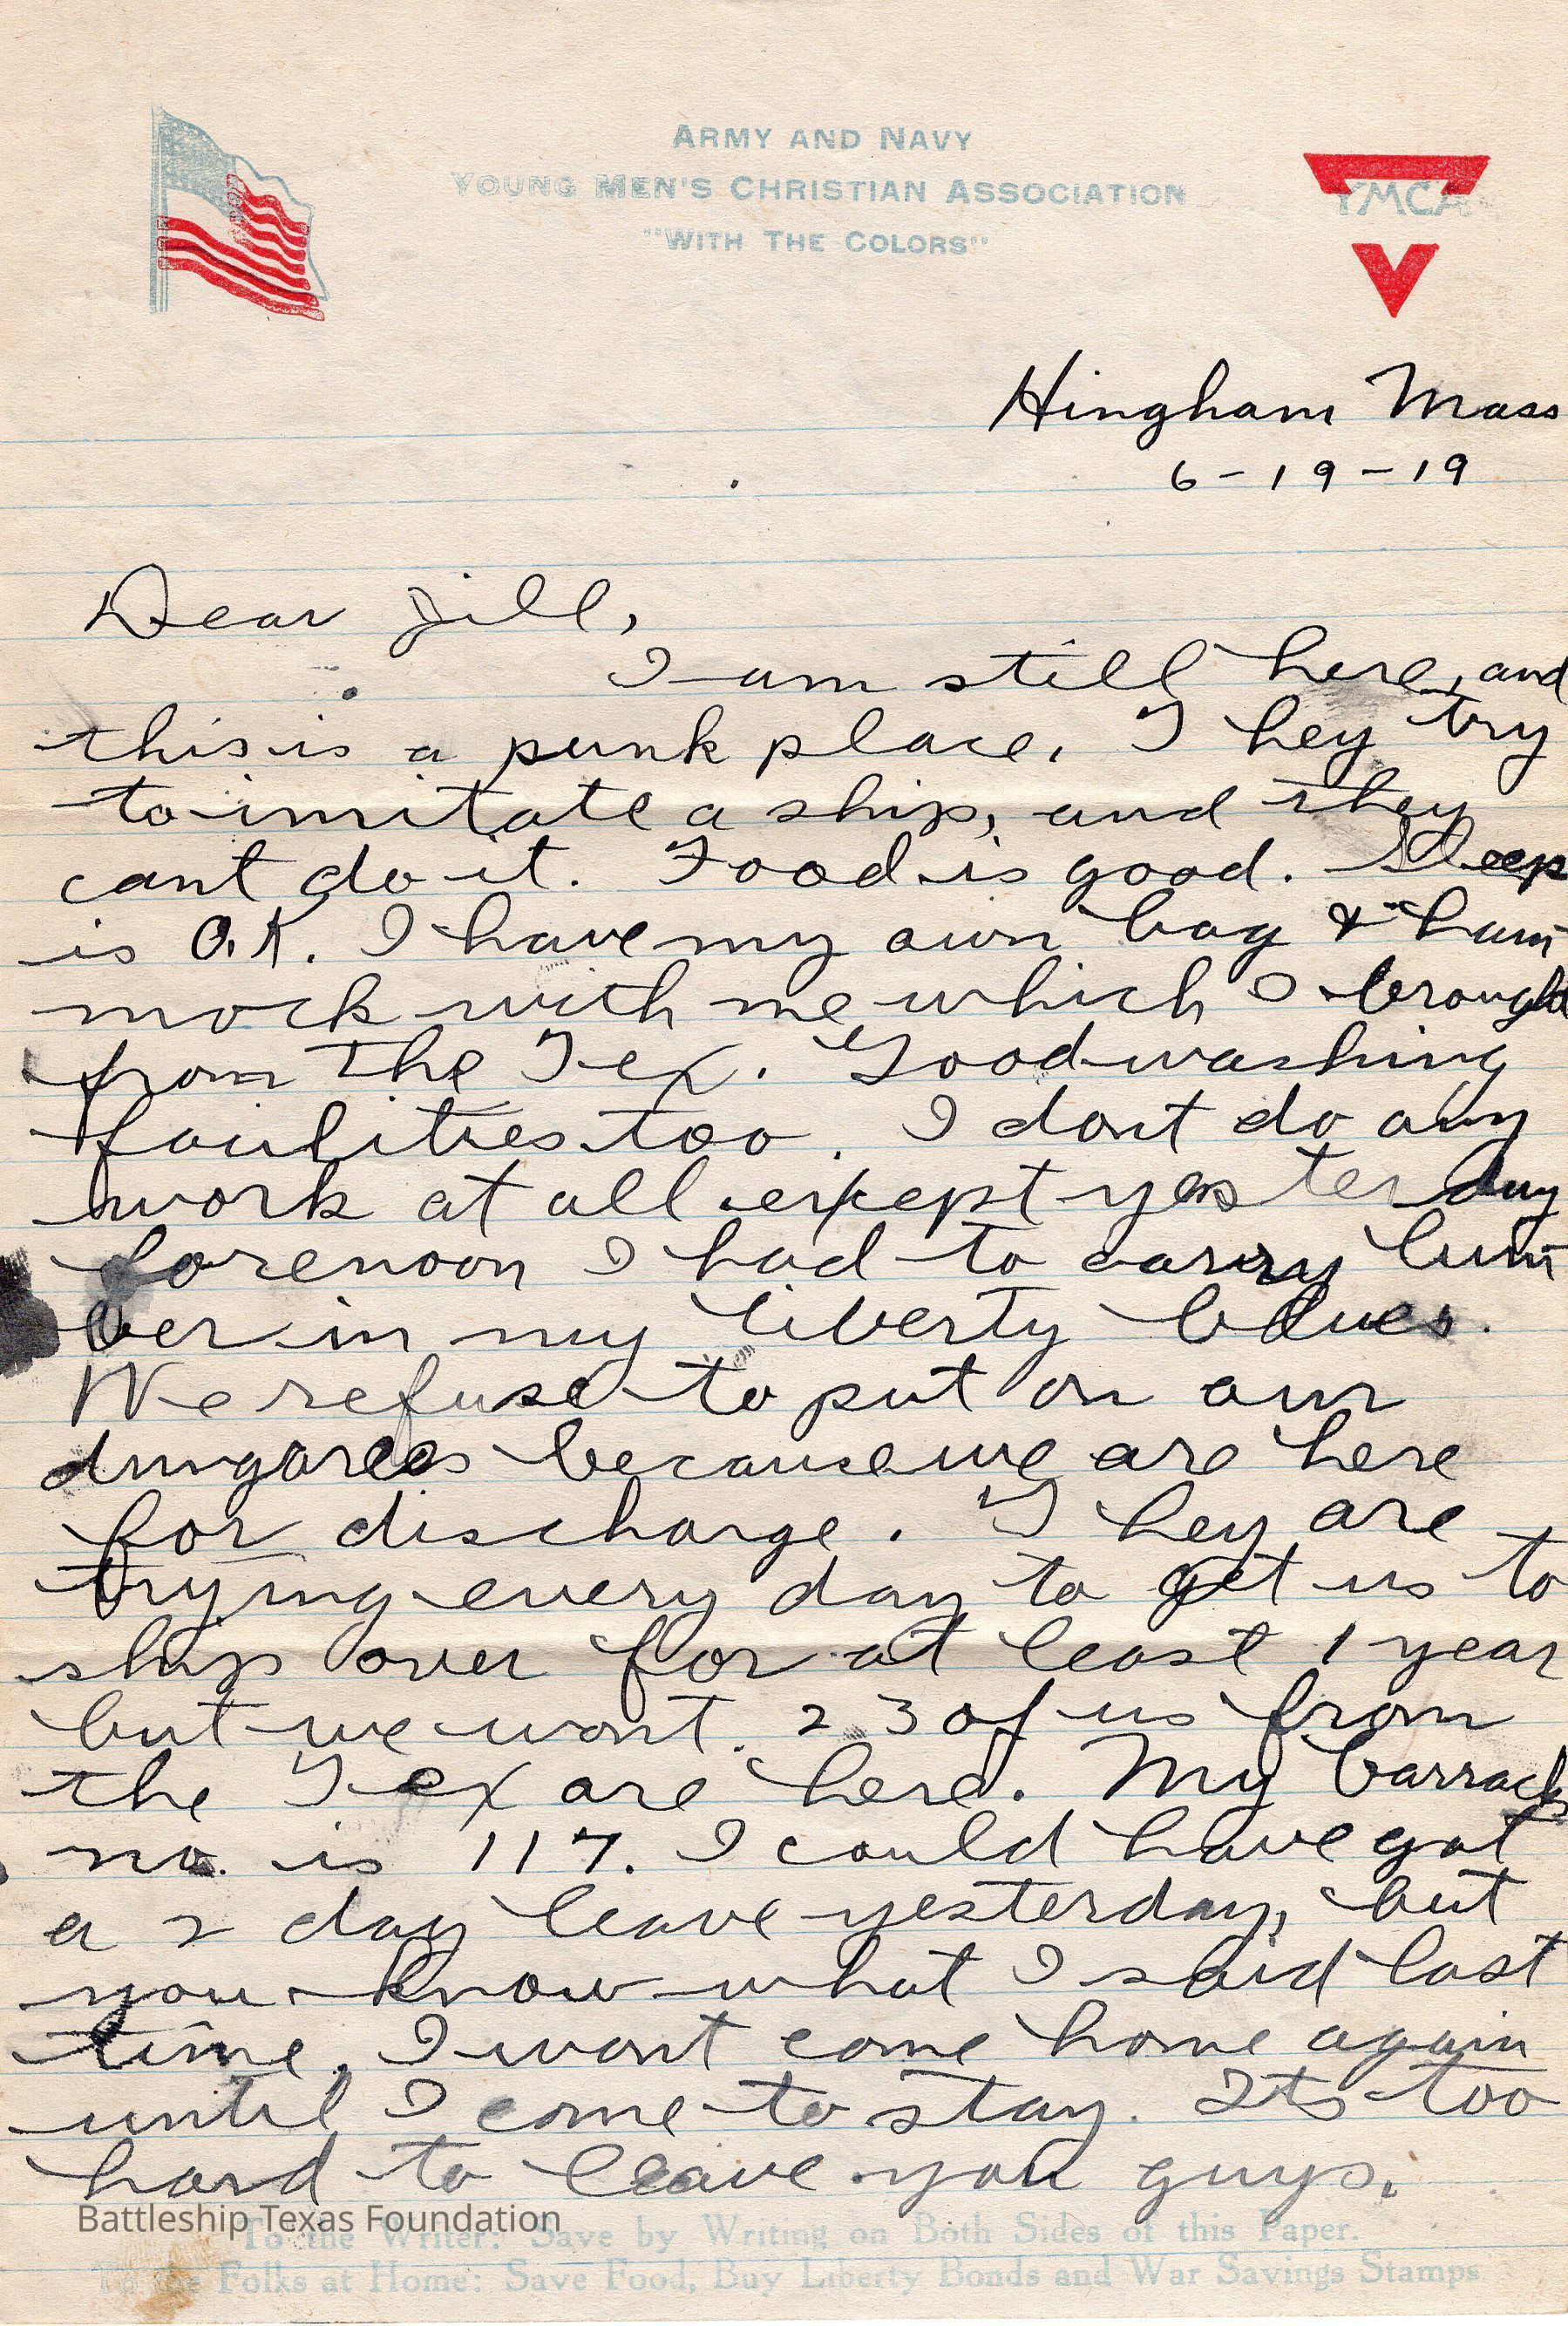 ARMY AND NAVY
YOUNG MEN'S CHRISTIAN ASSOCIATION
"WITH THE COLORS"
YMCA
Hingham Mass
6-19-19
Dear Jill,
I am still here, and
this is a punk place. They try
to imitate a ship, and they
cant do it. Food is good. Sleep
is O.K. I have my own bag & ham
mock with me which I brought
from the Tex. Good washing
facilities too. I dont do any
work at all except yesterday
forenoon I had to carry lum
ber in my liberty blues.
We refuse to put on our
dungarees because we are here
for discharge. They are
trying every day to get us to
ship over for at least 1 year
but we wont. 23 of us from
the Tex are here. My barrack
no. is 117. I could have got
a 2 day leave yesterday, but
you know what I said last
time. I wont come home again
until I come to stay. Its too
hard to leave you guys.
Battleship Texas Foundation
To the Writer: Save by Writing on Both Sides of this Paper.
To the Folks at Home: Save Food, Buy Liberty Bonds and War Savings Stamps